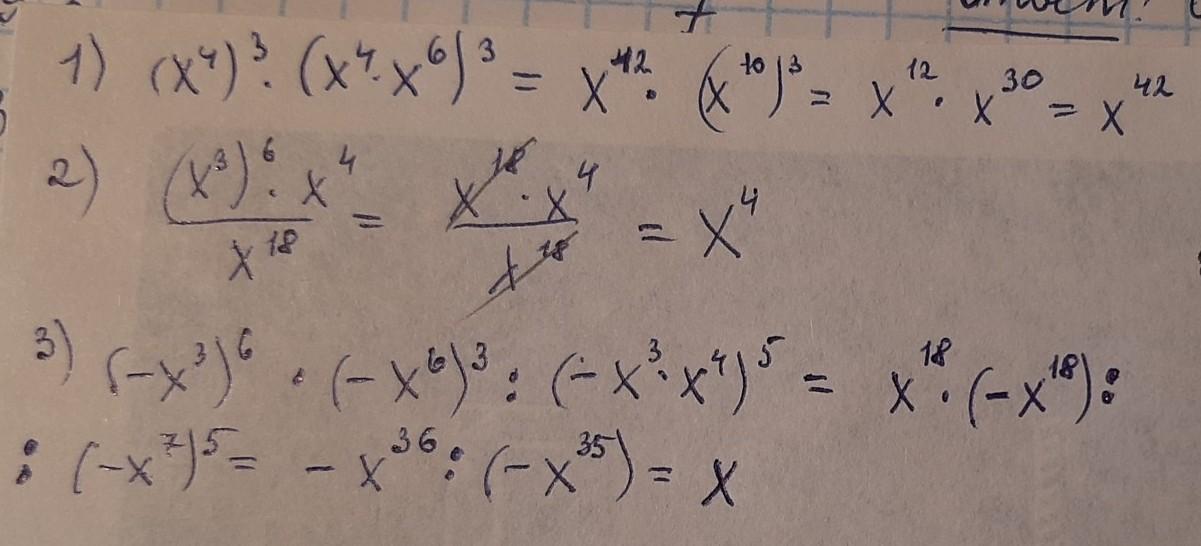 1) (x⁴)³ · (x⁴ · x⁶)³ = x¹² · (x¹⁰)³ = x¹² · x³⁰ = x⁴²
2) (x³)⁶ · x⁴ / x¹⁸ = x¹⁸ · x⁴ / x¹⁸ = x⁴
3) (-x³)⁶ · (-x⁶)³ : (-x³ · x⁴)⁵ = x¹⁸ · (-x¹⁸) :
: (-x⁷)⁵ = -x³⁶ : (-x³⁵) = x